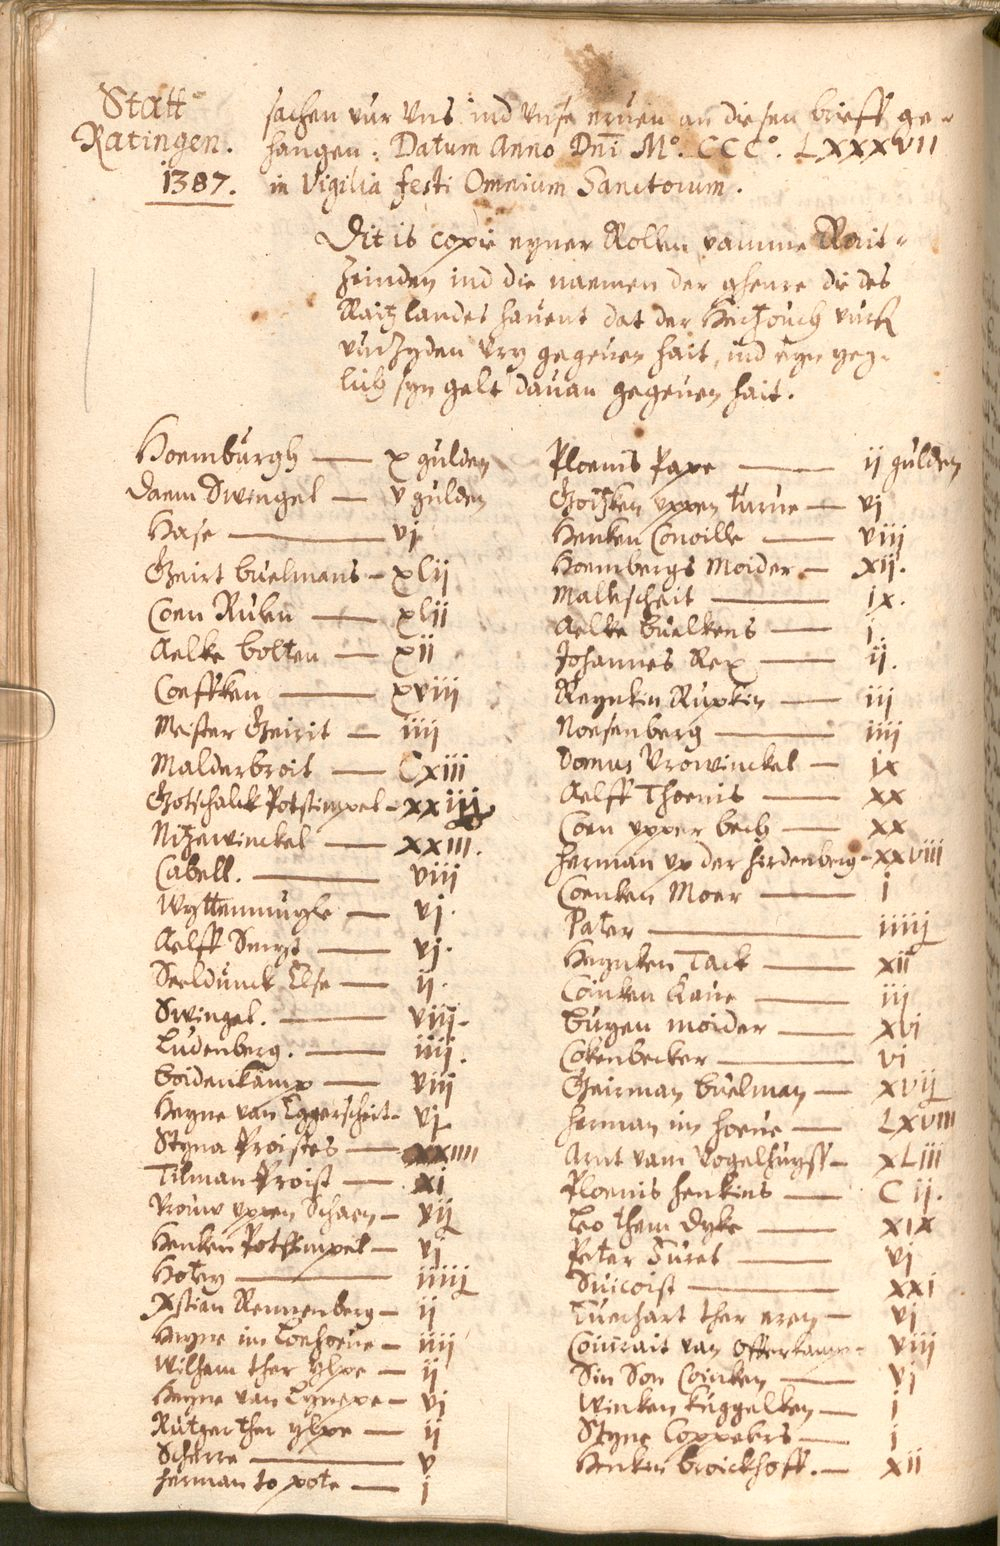 Statt
Ratingen.
1387.
sachen vur vns ind vnse erven an diesen brieff ge-
hangen. Datum Anno Dni M°. CCC°. LXXXVII
in Vigilia festi Omnium Sanctorum.
Dit is copie eyner Rollen vamme Rait-
zeinden ind die naemen der ghenre die des
Raitz landes havent dat der Hertzouch
vurzyden vry gegeven hait, ind eyn yeg-
lich syn gelt davan gegeven hait.
Hoemburgh — x gulden
Daem Swingel — v gulden
Hase — vj
Geirt buelmans — xlii
Coen Ruben — xlii
Aelke bolten — xii
Coeffken — xviii
Meister Geirit — iiij
Malderbroit — Cxiii
Gotschalck Potstimpel — xxiij
Nitzewinckel — xxiii.
Cabell. — viij
Wyttenmuyle — vj.
Aelff Smyt — vj.
Seeldunck Else — ij.
Swingel. — viij.
Ludenberg. — iiij.
boidenkamp — viij
Heyne van Eggerscheit — vj.
Styna Proistes — xxiiii
Tilman Proist — xi
Vrouw vppen Schaen — vij
Henken Potstimpel — vj
Hoten — iiiij
Xstian Rennenberg — ij
Heyne im Loehoeve — iiij
Wilhem ther ylpe — ij
Heyne van Lynepe — vj
Rutger ther ylpe — ij
Scherre — v
Herman to pote — j
Ploenis Pape — ij gulden
Goitzken vppen turne — vj
Henken Conoille — viij
Hoembergs Moider — xij.
Malkscheit — ix.
Aelke buelkens — i.
Johannes Rex — ij.
Reynkin Rupkin — iij
Noesenberg — iiij
Domus Vrowinckel — ix
Aelff Thoenis — xx
Coen vpper bech — xx
Herman vp der Hirdenberg — xxviii
Coenken Moer — i
Pater — iiiij
Heynken Tack — xii
Coinken Kaue — iij
buyen moider — xvi
Cokenbecker — vi
Geirman buelman — xvij
Herman im hoeve — Lxviii
Arnt vam Vogelhuyss — xLiii
Ploenis Henkins — C ij.
Leo them Dyke — xix
Peter Furet — vj
Suicoist — xxi
Tuechart ther eren — vj
Coinrait van Offerkamp — viij
Sin Son Coinken — vj
Winken Kuggelken — i
Styne Coppekes — i
Henken broickhoff. — xii